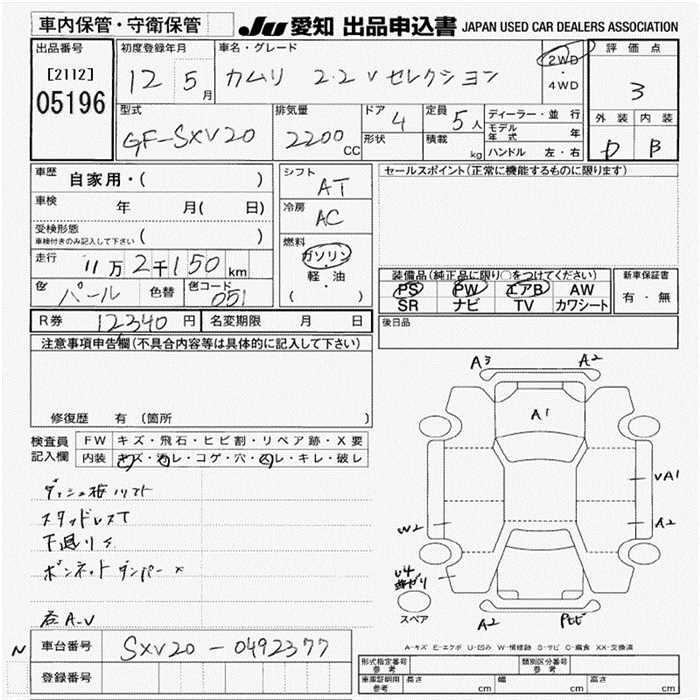 車内保管・守衛保管
JU 愛知 出品申込書 JAPAN USED CAR DEALERS ASSOCIATION
出品番号
[2112]
05196
初度登録年月
12 5月
車名・グレード
カムリ 2.2 V セレクション
2WD
・
4WD
評価点
3
外装 内装
D B
型式
GF-SXV20
排気量
2200 CC
ドア
4
形状
定員
5人
積載
kg
ディーラー・並行
モデル年式 年
ハンドル 左・右
車歴
自家用・( )
車検
年 月( 日)
受検形態
車検付きのみ記入して下さい ( )
走行
11万2千150 km
色
パール
色替
色コード
051
シフト
AT
冷房
AC
燃料
ガソリン
・
軽・油
( )
セールスポイント(正常に機能するものに限ります)
装備品(純正品に限り〇をつけてください)
PS PW エアB AW
SR ナビ TV カワシート
新車保証書
有・無
R券 12340 円
名変期限 月 日
後日品
注意事項申告欄(不具合内容等は具体的に記入して下さい)
修復歴 有 (箇所
検査員記入欄
FW キズ・飛石・ヒビ割・リペア跡・X要
内装 キズ・汚レ・コゲ・穴・スレ・キレ・破レ
スタッドレスT
下廻りS
ボンネットダンパー×
右A-V
A3 A2
A1
VA1
A2
W2
U4
スペア
A2
A-キズ E-エクボ U-凹み W-補修跡 S-サビ C-腐食 XX-交換済
N
車台番号
SXV20-0492377
登録番号
形式指定番号
参考
類別区分番号
参考
車庫証明用
参考
長さ cm 幅 cm 高さ cm